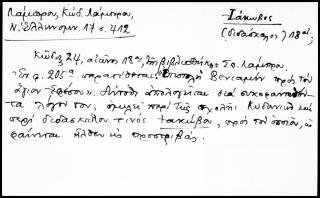 Λάμπρου, Κώδ. Λάμπρου,
Ν. Ἑλληνομν. 17 σ. 412
Ἰάκωβος
(διδάσκαλος) 18 αἰ.
Κῶδιξ 24, αἰῶνος 18ου, τῆς βιβλιοθήκης Σπ. Λάμπρου.
Ἐν φ. 205α παρατίθεται ἐπιστολὴ Βενιαμὶν πρὸς τὸν
ἅγιον Ἐφέσου κ. ἀπολογεῖται διὰ
λόγους του, ὁμιλεῖ περὶ τῆς σχολῆς Κυδωνιῶν καὶ
περὶ διδασκάλου τινὸς Ἰακώβου, πρὸς τὸν ὁποῖον, ὡς
φαίνεται ἦλθεν εἰς προστριβάς.